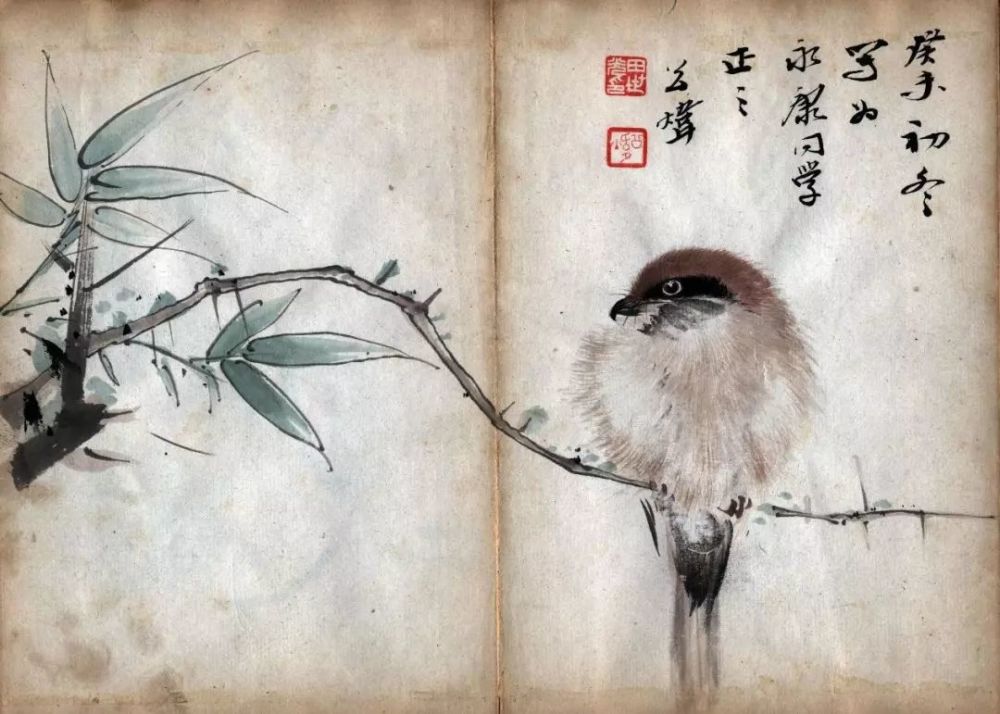 癸未初冬
写为
永康同学
正之
公炜
田世光印